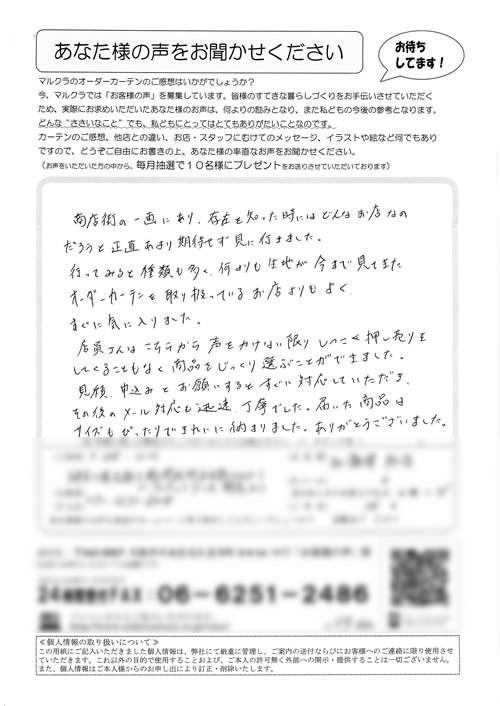 あなた様の声をお聞かせください
お待ち
してます!
マルクラのオーダーカーテンのご感想はいかがでしょうか?
今、マルクラでは「お客様の声」を募集しています。皆様のすてきな暮らしづくりをお手伝いさせていただく
ため、実際にお求めいただいたあなた様のお声は、何よりの励みとなり、また私どもの今後の参考となります。
どんな“ささいなこと”でも、私どもにとってはとてもありがたいことなのです。
カーテンのご感想、他店との違い、お店・スタッフにむけてのメッセージ、イラストや絵など何でもあり
ですので、どうぞご自由にお書きの上、あなた様の率直なお声をお聞かせください。
(お声をいただいた方の中から、毎月抽選で10名様にプレゼントをお送りさせていただいております)
商店街の一画にあり、存在を知った時にはどんなお店なの
だろうと正直あまり期待せず見に行きました。
行ってみると種類も多く、何よりも生地が今まで見てきた
オーダーカーテンを取り扱っているお店よりもよく、
すぐに気に入りました。
店員さんはこちらから声をかけない限りしつこく押し売りを
してくることもなく商品をじっくり選ぶことができました。
見積、申込みとお願いするとすぐに対応していただき、
その後のメール対応も迅速、丁寧でした。届いた商品は
サイズもぴったりできれいに納まりました。ありがとうございました。
06-6251-2486
≪個人情報の取り扱いについて≫
この用紙にご記入いただきました個人情報は、弊社にて厳重に管理し、ご案内の送付ならびにお客様へのご連絡に限り使用させ
ていただきます。これ以外の目的で使用することおよび、ご本人の許可無く外部への開示・提供することは一切ございません。
また、個人情報はご本人様からのお申し出により訂正・削除いたします。